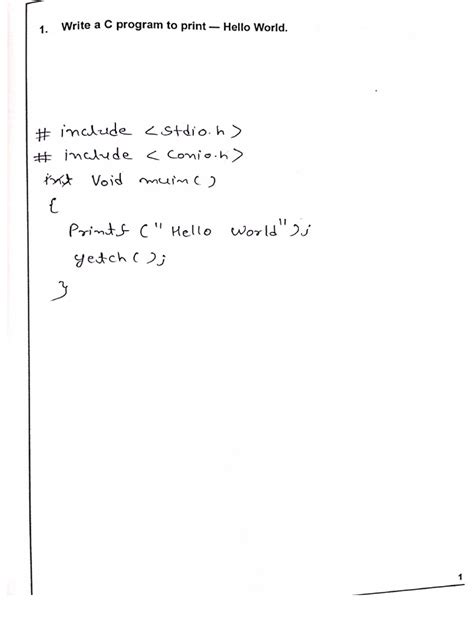 1. Write a C program to print — Hello World.
# include <stdio.h>
# include <conio.h>
int void main()
{
printf ("Hello World");
getch();
}
1